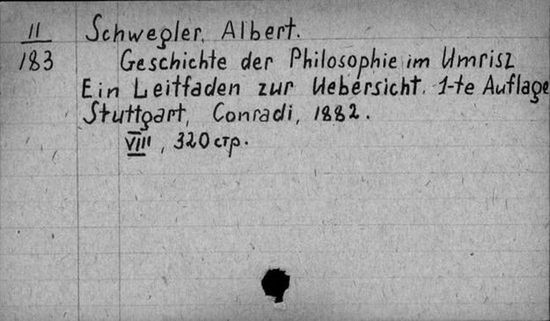 II Schwegler, Albert.
183 Geschichte der Philosophie im Umrisz
Ein Leitfaden zur Uebersicht. 1-te Auflage
Stuttgart, Conradi, 1882.
VIII, 320 стр.